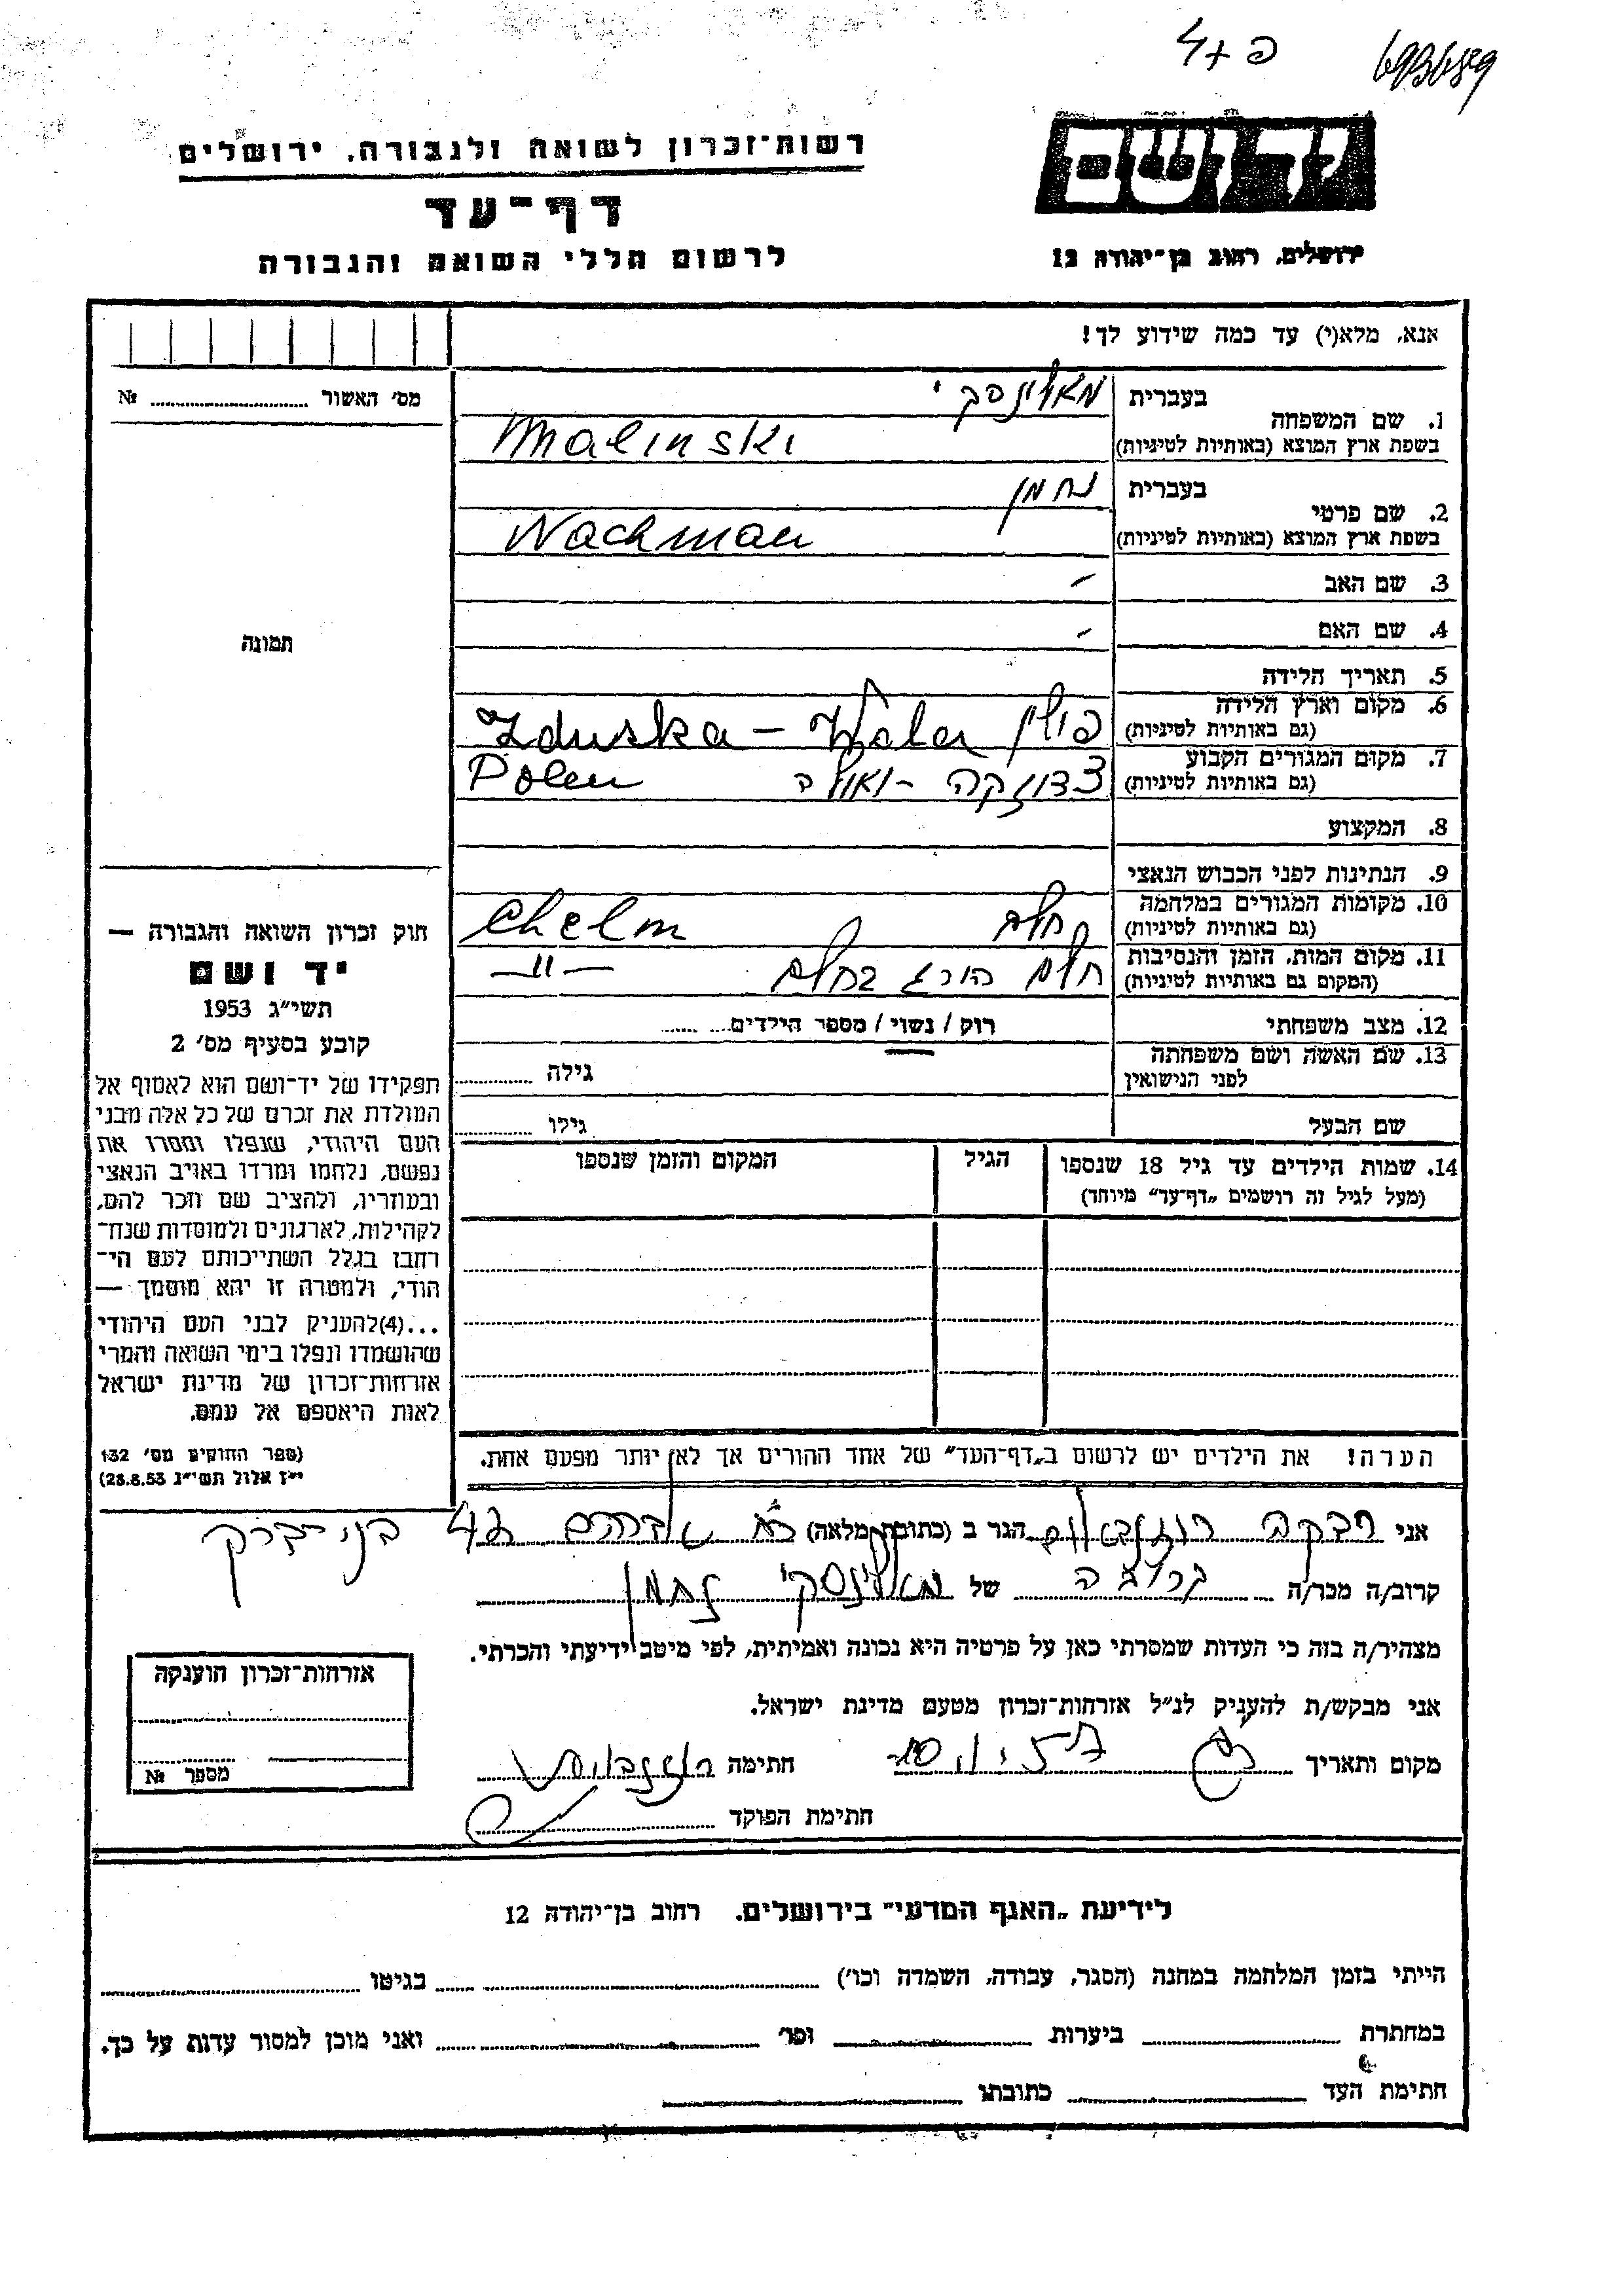 693689
יד ושם
ירושלים, רחוב בן־יהודה 12
רשות־זכרון לשואה ולגבורה, ירושלים
דף־עד
לרשום חללי השואה והגבורה
אנא, מלא(י) עד כמה שידוע לך!
מס׳ האשור № 
1. שם המשפחה
בעברית מאלינסקי
בשפת ארץ המוצא (באותיות לטיניות) Malinski
2. שם פרטי
בעברית נחמן
בשפת ארץ המוצא (באותיות לטיניות) Nachman
3. שם האב -
4. שם האם -
5. תאריך הלידה
6. מקום וארץ הלידה
(גם באותיות לטיניות) פולין Zduska - Wola
7. מקום המגורים הקבוע
(גם באותיות לטיניות) צדונקה - וואולה Polen
8. המקצוע
9. הנתינות לפני הכבוש הנאצי
10. מקומות המגורים במלחמה
(גם באותיות לטיניות) חלם Chelm
11. מקום המות, הזמן והנסיבות
(המקום גם באותיות לטיניות) חלם הורג בחלם -"-
12. מצב משפחתי רוק / נשוי / מספר הילדים
13. שם האשה ושם משפחתה
לפני הנישואין גילה
שם הבעל גילו
14. שמות הילדים עד גיל 18 שנספו
(מעל לגיל זה רושמים „דף־עד״ מיוחד)
הגיל
המקום והזמן שנספו
תמונה
חוק זכרון השואה והגבורה —
יד ושם
תשי״ג 1953
קובע בסעיף מס׳ 2
תפקידו של יד־ושם הוא לאסוף אל
המולדת את זכרם של כל אלה מבני
העם היהודי, שנפלו ומסרו את
נפשם, נלחמו ומרדו באויב הנאצי
ובעוזריו, ולהציב שם וזכר להם,
לקהילות, לארגונים ולמוסדות שנח־
רחבו בגלל השתייכותם לעם הי־
הודי, ולמטרה זו יהא מוסמך —
...(4)להעניק לבני העם היהודי
שהושמדו ונפלו בימי השואה והמרי
אזרחות־זכרון של מדינת ישראל
לאות היאספם אל עמם.
(ספר החוקים מס׳ 132
י״ז אלול תשי״ג 28.8.53)
הערה! את הילדים יש לרשום ב„דף־העד״ של אחד ההורים אך לא יותר מפעם אחת.
אני רבקה רוזנבלום הגר ב (כתובת מלאה) בני ברק
קרוב/ה מכר/ה קרובה של מאלינסקי נחמן
מצהיר/ה בזה כי העדות שמסרתי כאן על פרטיה היא נכונה ואמיתית, לפי מיטב ידיעתי והכרתי.
אני מבקש/ת להעניק לנ״ל אזרחות־זכרון מטעם מדינת ישראל.
מקום ותאריך חתימה רוזנבלום
חתימת הפוקד
אזרחות־זכרון הוענקה
מספר №
לידיעת „האגף המדעי״ בירושלים, רחוב בן־יהודה 12
הייתי בזמן המלחמה במחנה (הסגר, עבודה, השמדה וכו׳) בגיטו
במחתרת ביערות וכו׳ ואני מוכן למסור עדות על כך.
חתימת העד כתובתו